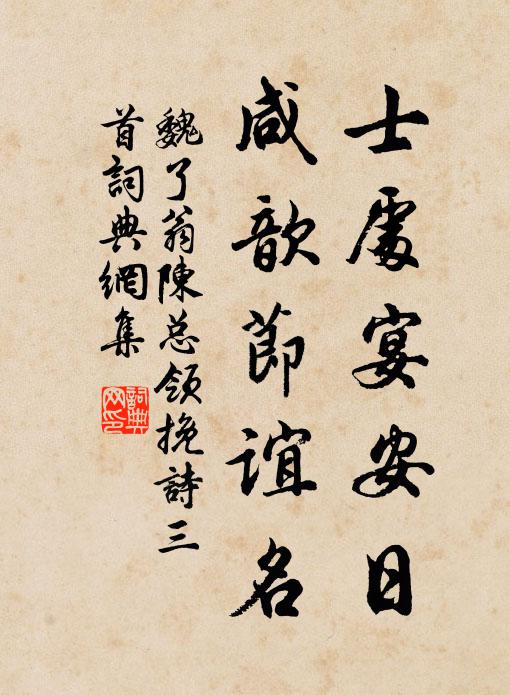 士處宴安日
咸歆節誼名
魏了翁陳总領挽詩三
首詞典網集
詞典网印